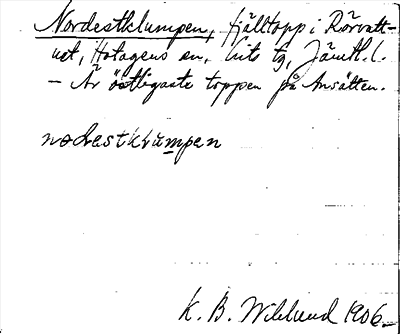 Nordestklumpen, fjälltopp i Rörvatt-
net, Hotagens sn, Lits tg, Jämtl. l.
— Är östligaste toppen på Ansätten.
nodestklumpen
K. B. Wiklund 1906.